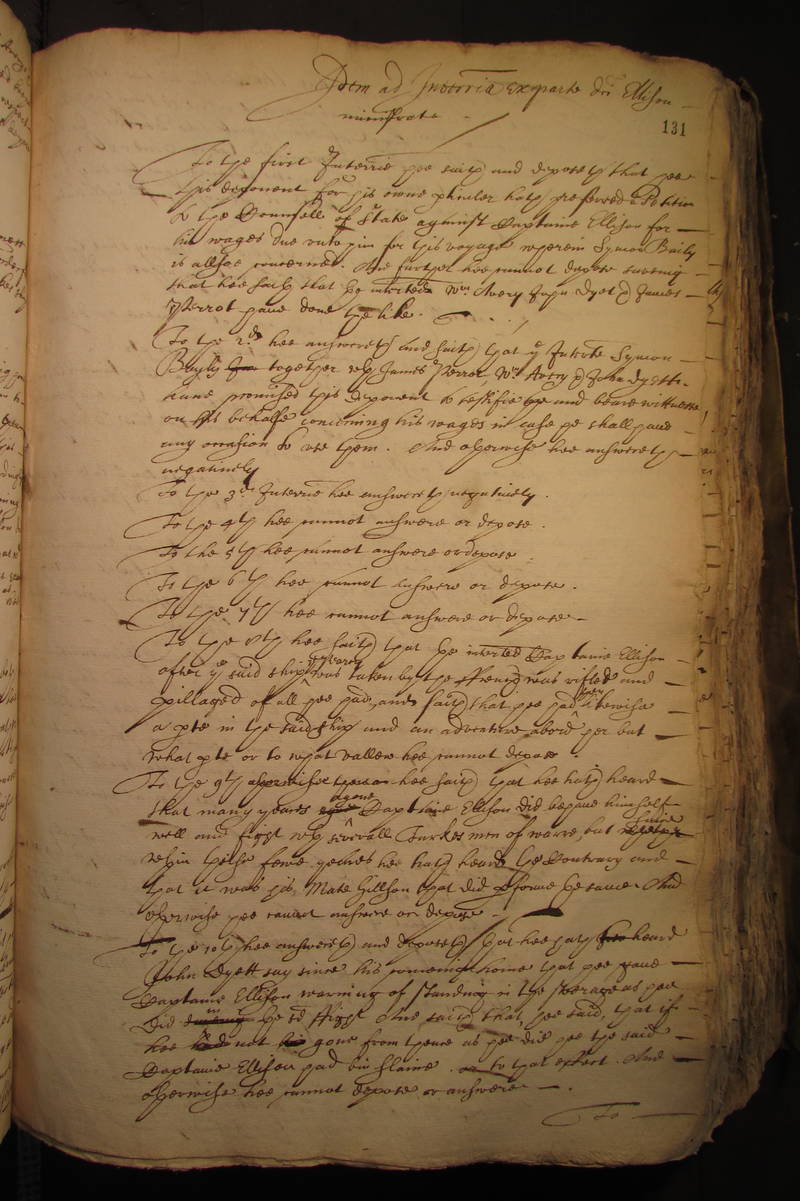 Idem ad Interria ex parte dci Ellison
ministrata
131
To the first Interrie hee saith and deposeth that hee
this deponent for his owne pticuler hath preferred a Petition
to the Counsell of State against Captaine Ellison for
his wages due unto him for this voyage wherein Symon Baily
is allsoe concerned. And further hee cannot depose saveing
that hee saith that the interted Wm Avery John Dyet & James
Perrot have done the like.
To the 2d hee answereth and saith that ye Interte Symon
Bayly together wth James Perrot, Wm Avery & John Dyett
have promised this deponent to testifie and beare wittnesse
on his behalfe concerning his wages in case he shall have
any occasion to use them. And otherwise hee answereth
negatively
To the 3d Interrie hee answereth negatively.
To the 4th hee cannot answere or depose.
To the 5th hee cannot answere or depose.
To the 6th hee cannot answere or depose.
To the 7th hee cannot answere or depose
To the 8th hee saith that the interted Captaine Ellison
after ye said ship was taken by the ffrench was rifled and
pillaged of all hee had, and saith that hee had likewise
a pte in the said ship and an adventure abord her but
what pte or to what vallew hee cannot depose.
To the 9th hee saith that hee hath heard
that many yeares agone Captaine Ellison did behave himself
well and fight wth severall Turkes men of warre, but since
wthin these fewe yeares hee hath heard the Contrary and
that it was his Mate Gillson that did pforme the same. And
otherwise hee cannot answere or depose
To the 10th hee answereth and deposeth that hee hath heard
John Dyett say since his comeing home that hee gave
Captaine Ellison warning of standing in the steerage as hee
did in the sd fight And saith that hee said, that if
hee had not gone from thence as hee did hee the said
Captaine Ellison had bin slaine. or to that effect. And
otherwise hee cannot depose or answere.
To